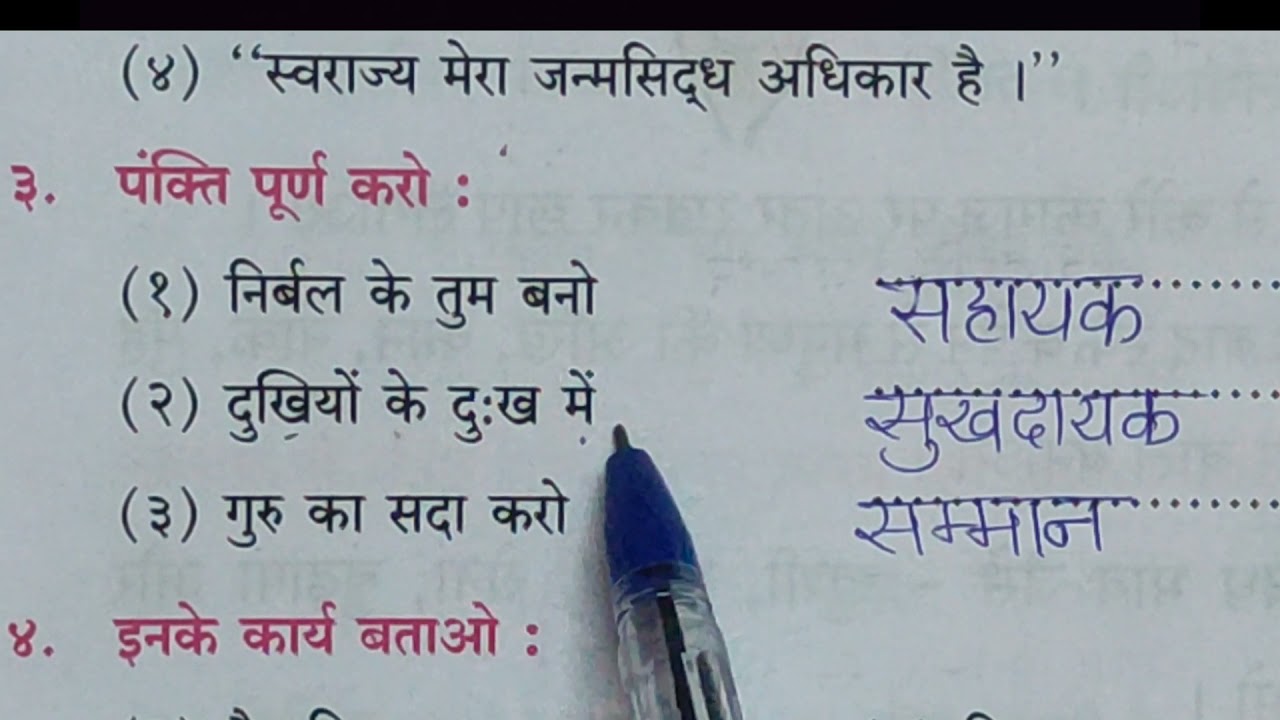 (४) “स्वराज्य मेरा जन्मसिद्ध अधिकार है ।”
३. पंक्ति पूर्ण करो :
(१) निर्बल के तुम बनो सहायक
(२) दुखियों के दुःख में सुखदायक
(३) गुरु का सदा करो सम्मान
४. इनके कार्य बताओ :